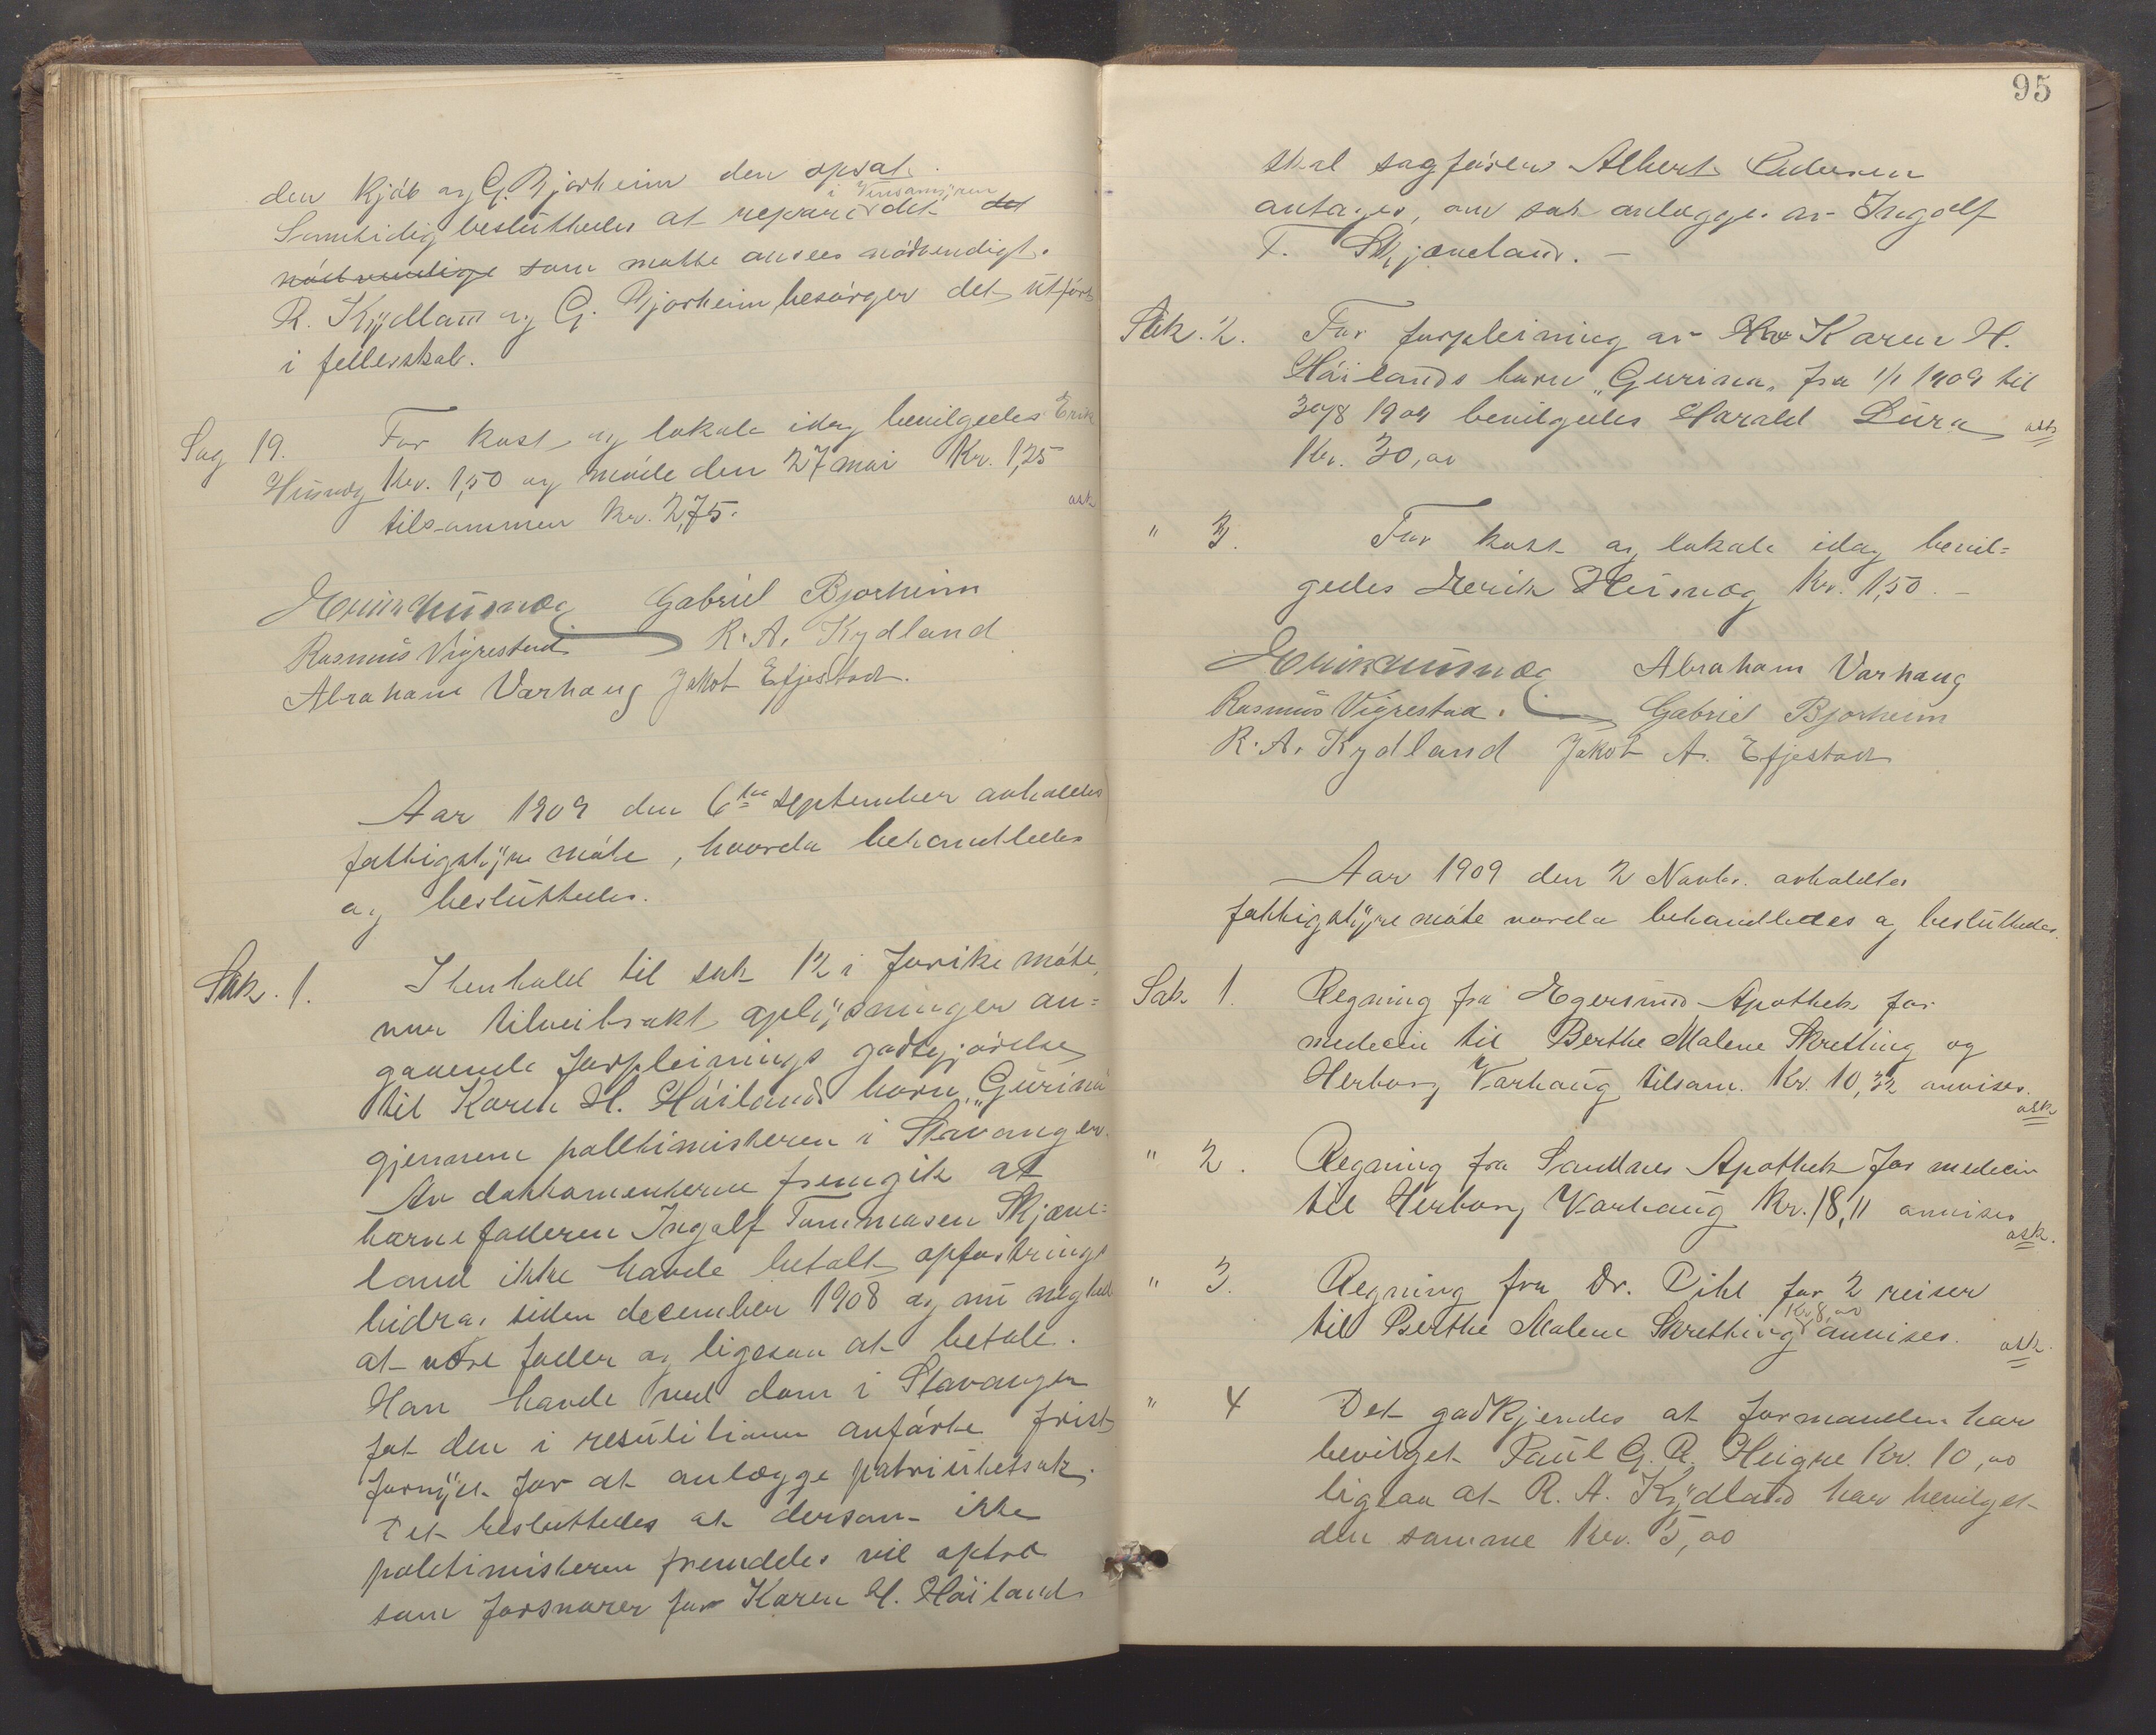 den kjøb og G. Bjorheim den opsat.
Samtidig besluttedes at reparere det i det
nødvendige som matte ansees nødvendigt.
R. Kydland og G. Bjorheim besørger det utført
i fellesskab.
Sag 19. For kost og lokale idag bevilgedes Erik
Husvæg Kr. 1,50 og møde den 27 mai Kr. 1,25
tilsammen kr. 2,75.
ask
Erik Husvæg Gabriel Bjorheim
Rasmus Vigrestad R. A. Kydland
Abraham Varhaug Jakob Efjestad.
Aar 1909 den 6te september avholdtes
fattigstyre møte, hvorda behandledes
og besluttedes.
Sak. 1. I henhold til sak 12 i forike møte,
var tilveibrakt oplysninger an=
gaaende forpleinings godtgjørelse
til Karen H. Høilands barn „Gurina"
gjennem politimisteren i Stavanger.
Av dokkomenterne fremgik at
barnefaderen Ingolf Tommasen Skjæve=
land ikke havde betalt opfostrings
bidra, siden december 1908 og nu negted
at være fader og ligesaa at betale.
Han havde ved dom i Stavanger
fåt den i resulitionen anførte frist
fornyet for at anlægge patriutetsak.
Det besluttedes at dersom ikke
politimisteren fremdeles vil optræ
som forsvarer for Karen H. Høiland
95
skal sagfører Albert Pedersen
antages, om sak anlægges av Ingolf
T. Skjæveland. —
Sak. 2. For forpleining av Karen H.
Høilands barn „Gurina" fra 1/1 1909 til
30/8 1909 bevilgedes Harald Lura
ask
Kr. 30,00
" 3. For kost og lokale idag bevil=
gedes Herik Husvæg Kr. 1,50. —
Erik Husvæg Abraham Varhaug
Rasmus Vigrestad. Gabriel Bjorheim
R. A. Kydland Jakob A. Efjestad
Aar 1909 den 2 Novbr. avholdtes
fattigstyre møte vorda behandledes og besluttedes.
Sak 1. Regning fra Egersund Apothek for
medecin til Berthe Malene Skretting og
Herborg Varhaug tilsam. Kr. 10,32 anvises.
ask
" 2. Regning fra Sandnes Apothek for medecin
til Herborg Varhaug Kr. 18,11 anvises
ask.
" 3. Regning fra Dr. Pihl for 2 reiser
Kr 8,00
til Berthe Malene Skretting anvises.
ask.
" 4 Det godkjendes at formanden har
bevilget Paul G. R. Heigre Kr. 10,00
ligesaa at R. A. Kydland har bevilget
den samme Kr. 5,00